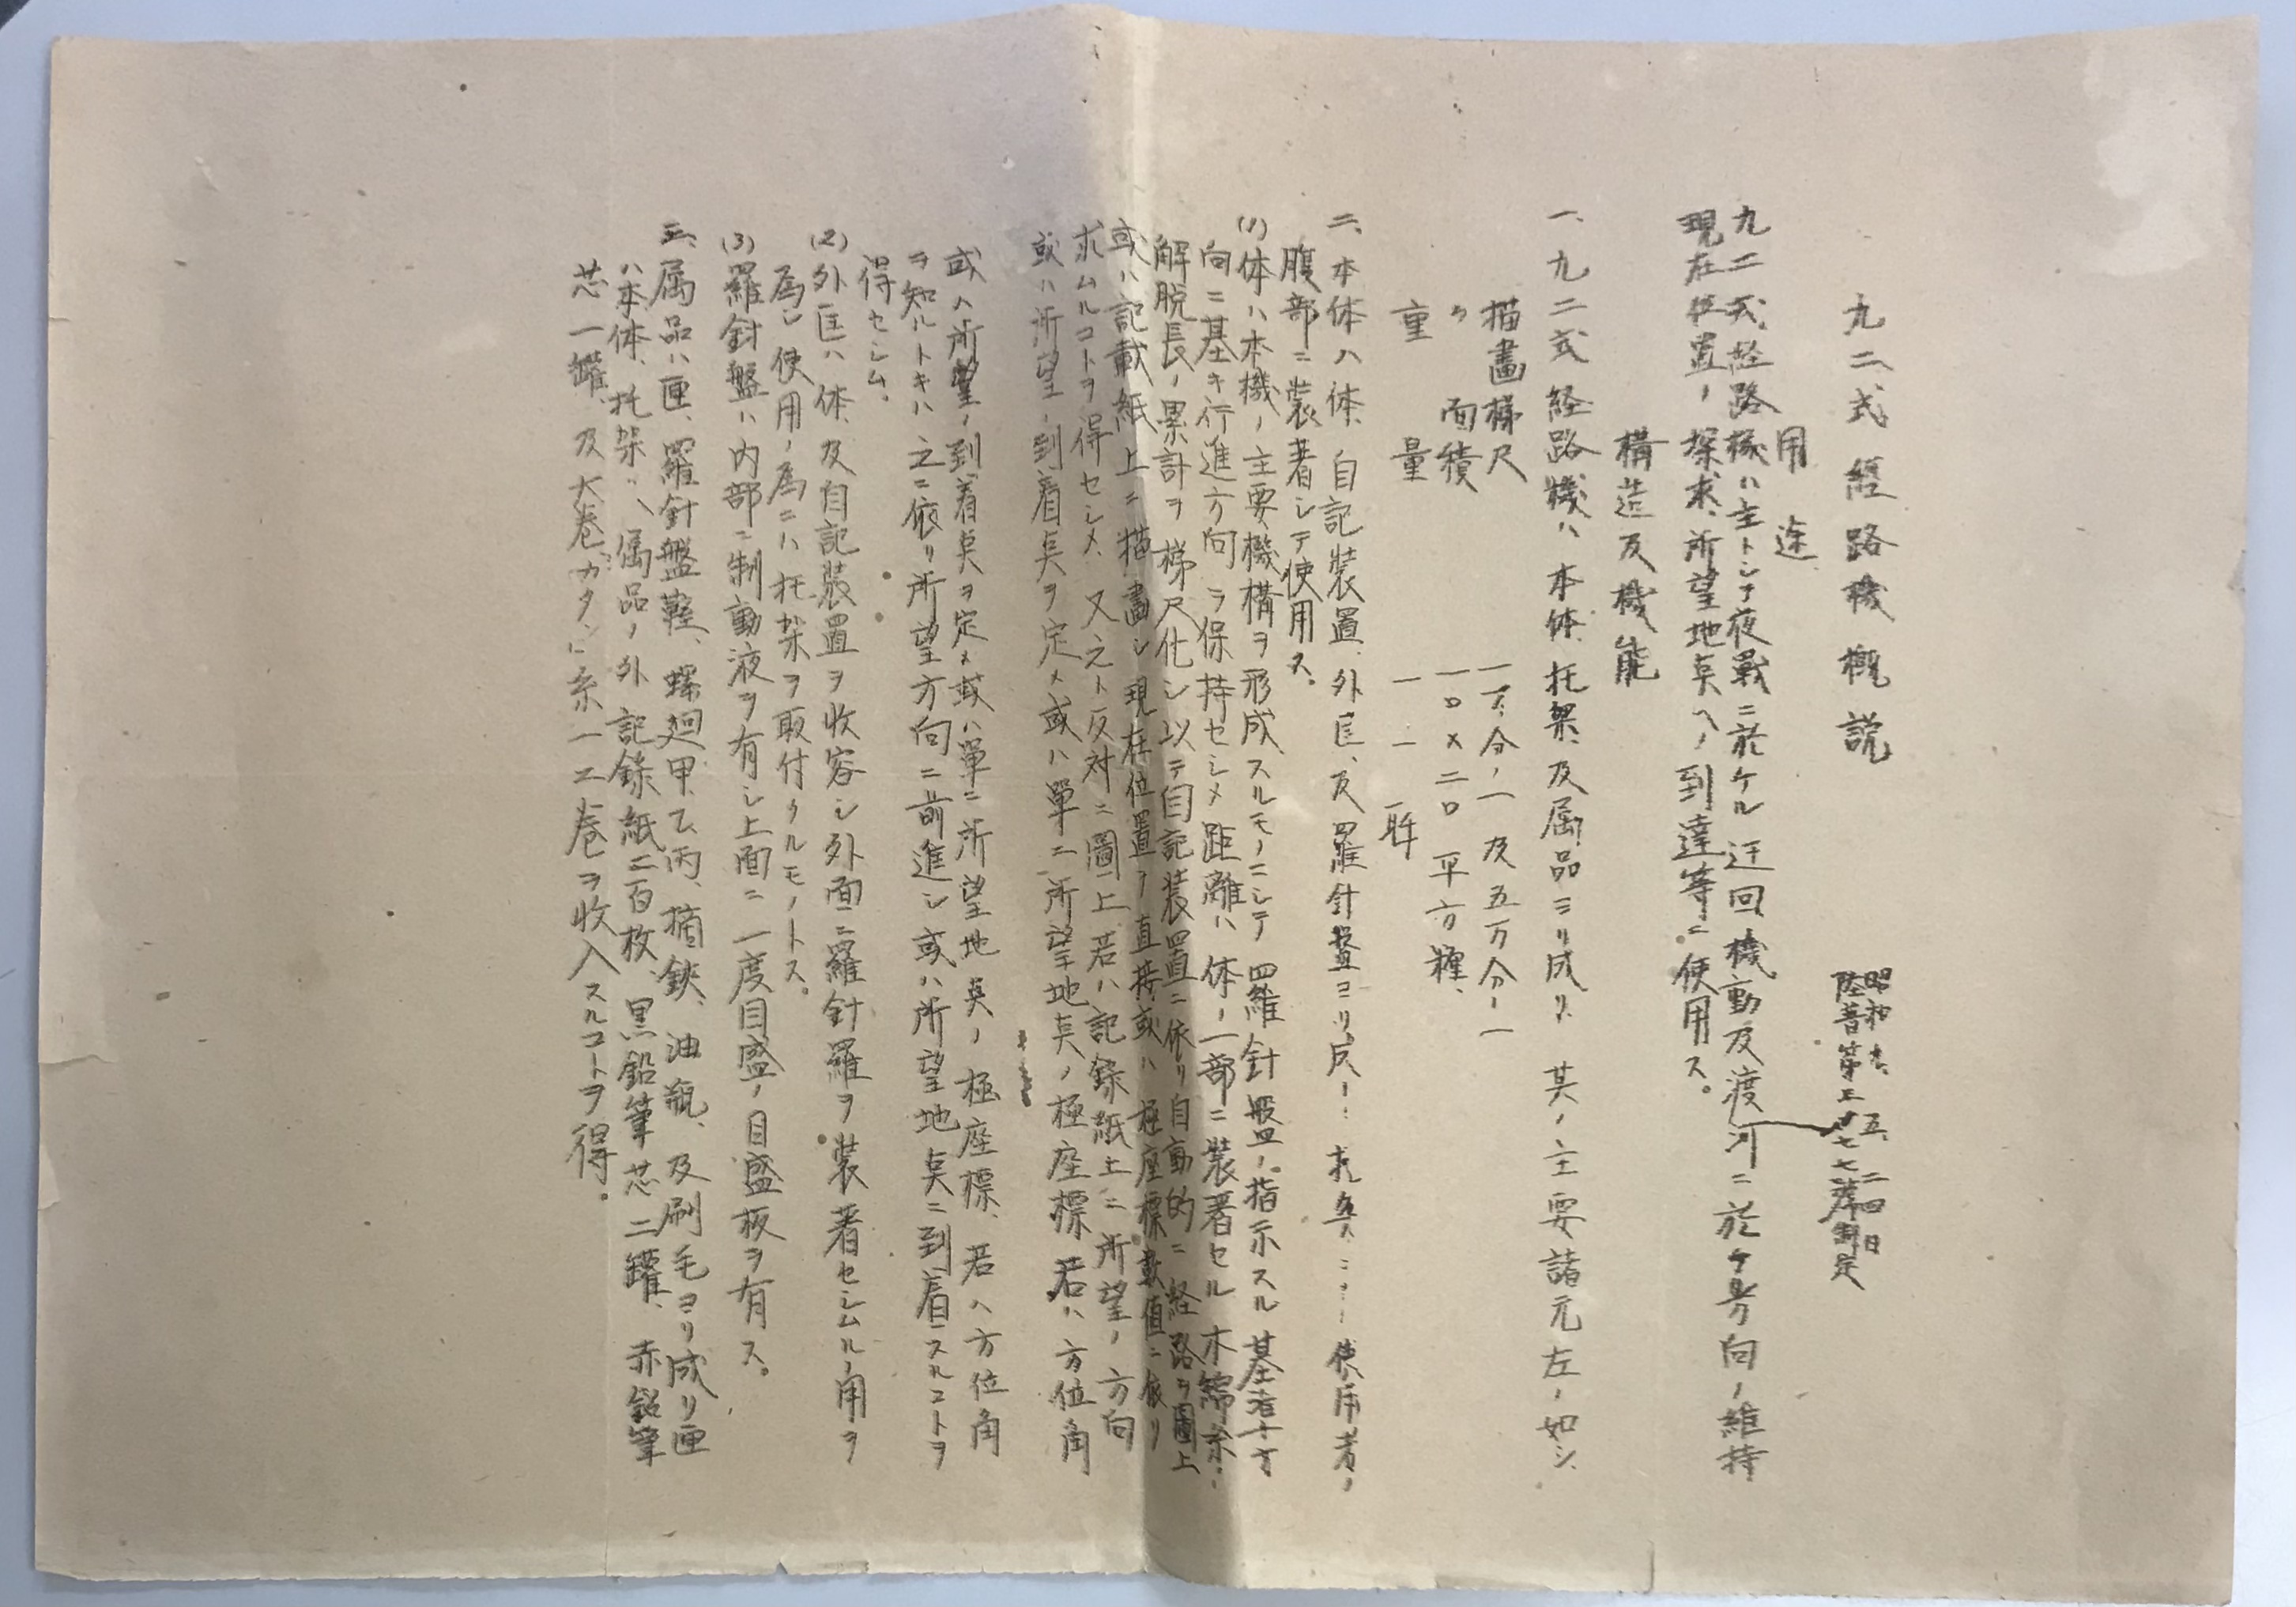 九二式経路機概説
昭和 五、二四日
陸普第三 七七 制定
用途
九二式経路機ハ主トシテ夜戰ニ於ケル迂回機動及渡河ニ於ケル方向ノ維持
現在位置ノ探求、所望地点ヘノ到達等ニ使用ス。
構造及機能
一、九二式経路機ハ本体、托架、及属品ヨリ成リ其ノ主要諸元左ノ如シ、
描畫梯尺 一万分ノ一及五万分ノ一
〃 面積 一〇×二〇平方糎、
重量 一一瓩
二、本体ハ体、自記装置、外匡、及羅針盤ヨリ成 使用者ノ
腹部ニ装著シテ使用ス。
(1)体ハ本機ノ主要機構ヲ形成スルモノニシテ羅針盤ノ指示スル基
向ニ基キ行進方向ヲ保持セシメ距離ハ体ノ一部ニ装著セル木綿糸
解脱長ノ累計ヲ梯尺化シ以テ自記装置ニ依リ自動的ニ経路ヲ圖上
或ハ記載紙上ニ描畫シ現在位置ヲ直接或ハ極座標数値ニ依リ
求ムルコトヲ得セシメ又之ト反対ニ圖上若ハ記錄紙上ニ所望ノ方向
或ハ所望ノ到着点ヲ定メ或ハ單ニ所望地点ノ極座標若ハ方位角
或ハ所望ノ到着点ヲ定メ或ハ單ニ所望地点ノ極座標、若ハ方位角
ヲ知ルトキハ之ニ依リ所望方向ニ前進シ或ハ所望地点ニ到着スルコトヲ
得セシム。
(2)外匡ハ体、及自記装置ヲ收容シ外面ニ羅針羅ヲ装著セシムルノ用ヲ
為シ使用ノ為ニハ托架ヲ取付クルモノトス。
(3)羅針盤ハ内部ニ制動液ヲ有シ上面ニ一度目盛ノ目盛板ヲ有ス。
三、属品ハ匣、羅針盤鞄、螺廻甲、乙、丙、摘鋏、油瓶、及刷毛ヨリ成リ匣
ハ本体、托架、属品ノ外記錄紙二百枚、黒鉛筆芯二罐、赤鉛筆
芯一罐、及大巻カタン糸一二巻ヲ收入スルコトヲ得。